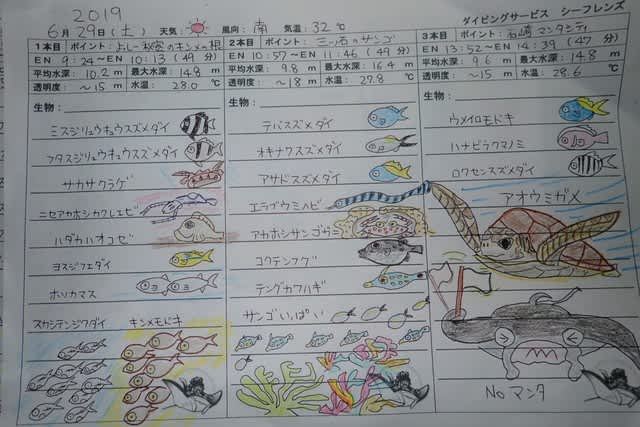 2019
6月29日(土) 天気: 風向: 南 気温: 32℃
ダイビングサービス シーフレンズ
1本目 ポイント: よしー秘密のキンメの根
EN 9:24~EN 10:13 (49分)
平均水深: 10.2 m 最大水深: 14.8 m
透明度: ~15 m 水温: 28.0 ℃
生物:
ミスジリュウキュウスズメダイ
フタスジリュウキュウスズメダイ
サカサクラゲ
ニセアカホシカクレエビ
ハダカハオコゼ
ヨスジフエダイ
ホソカマス
スカシテンジクダイ キンメモドキ
2本目 ポイント: 三ツ石のサンゴ
EN 10:57~EN 11:46 (49分)
平均水深: 9.8 m 最大水深: 16.4 m
透明度: ~18 m 水温: 27.8 ℃
生物:
デバスズメダイ
オキナワスズメダイ
アサドスズメダイ
エラブウミヘビ
アカホシサンゴガニ
コクテンフグ
テングカワハギ
サンゴいっぱい
3本目 ポイント: 石崎マンタシティ
EN 13:52~EN 14:39 (47分)
平均水深: 9.6 m 最大水深: 14.8 m
透明度: ~15 m 水温: 28.6 ℃
生物:
ウメイロモドキ
ハナビラクマノミ
ロクセンスズメダイ
アオウミガメ
No マンタ